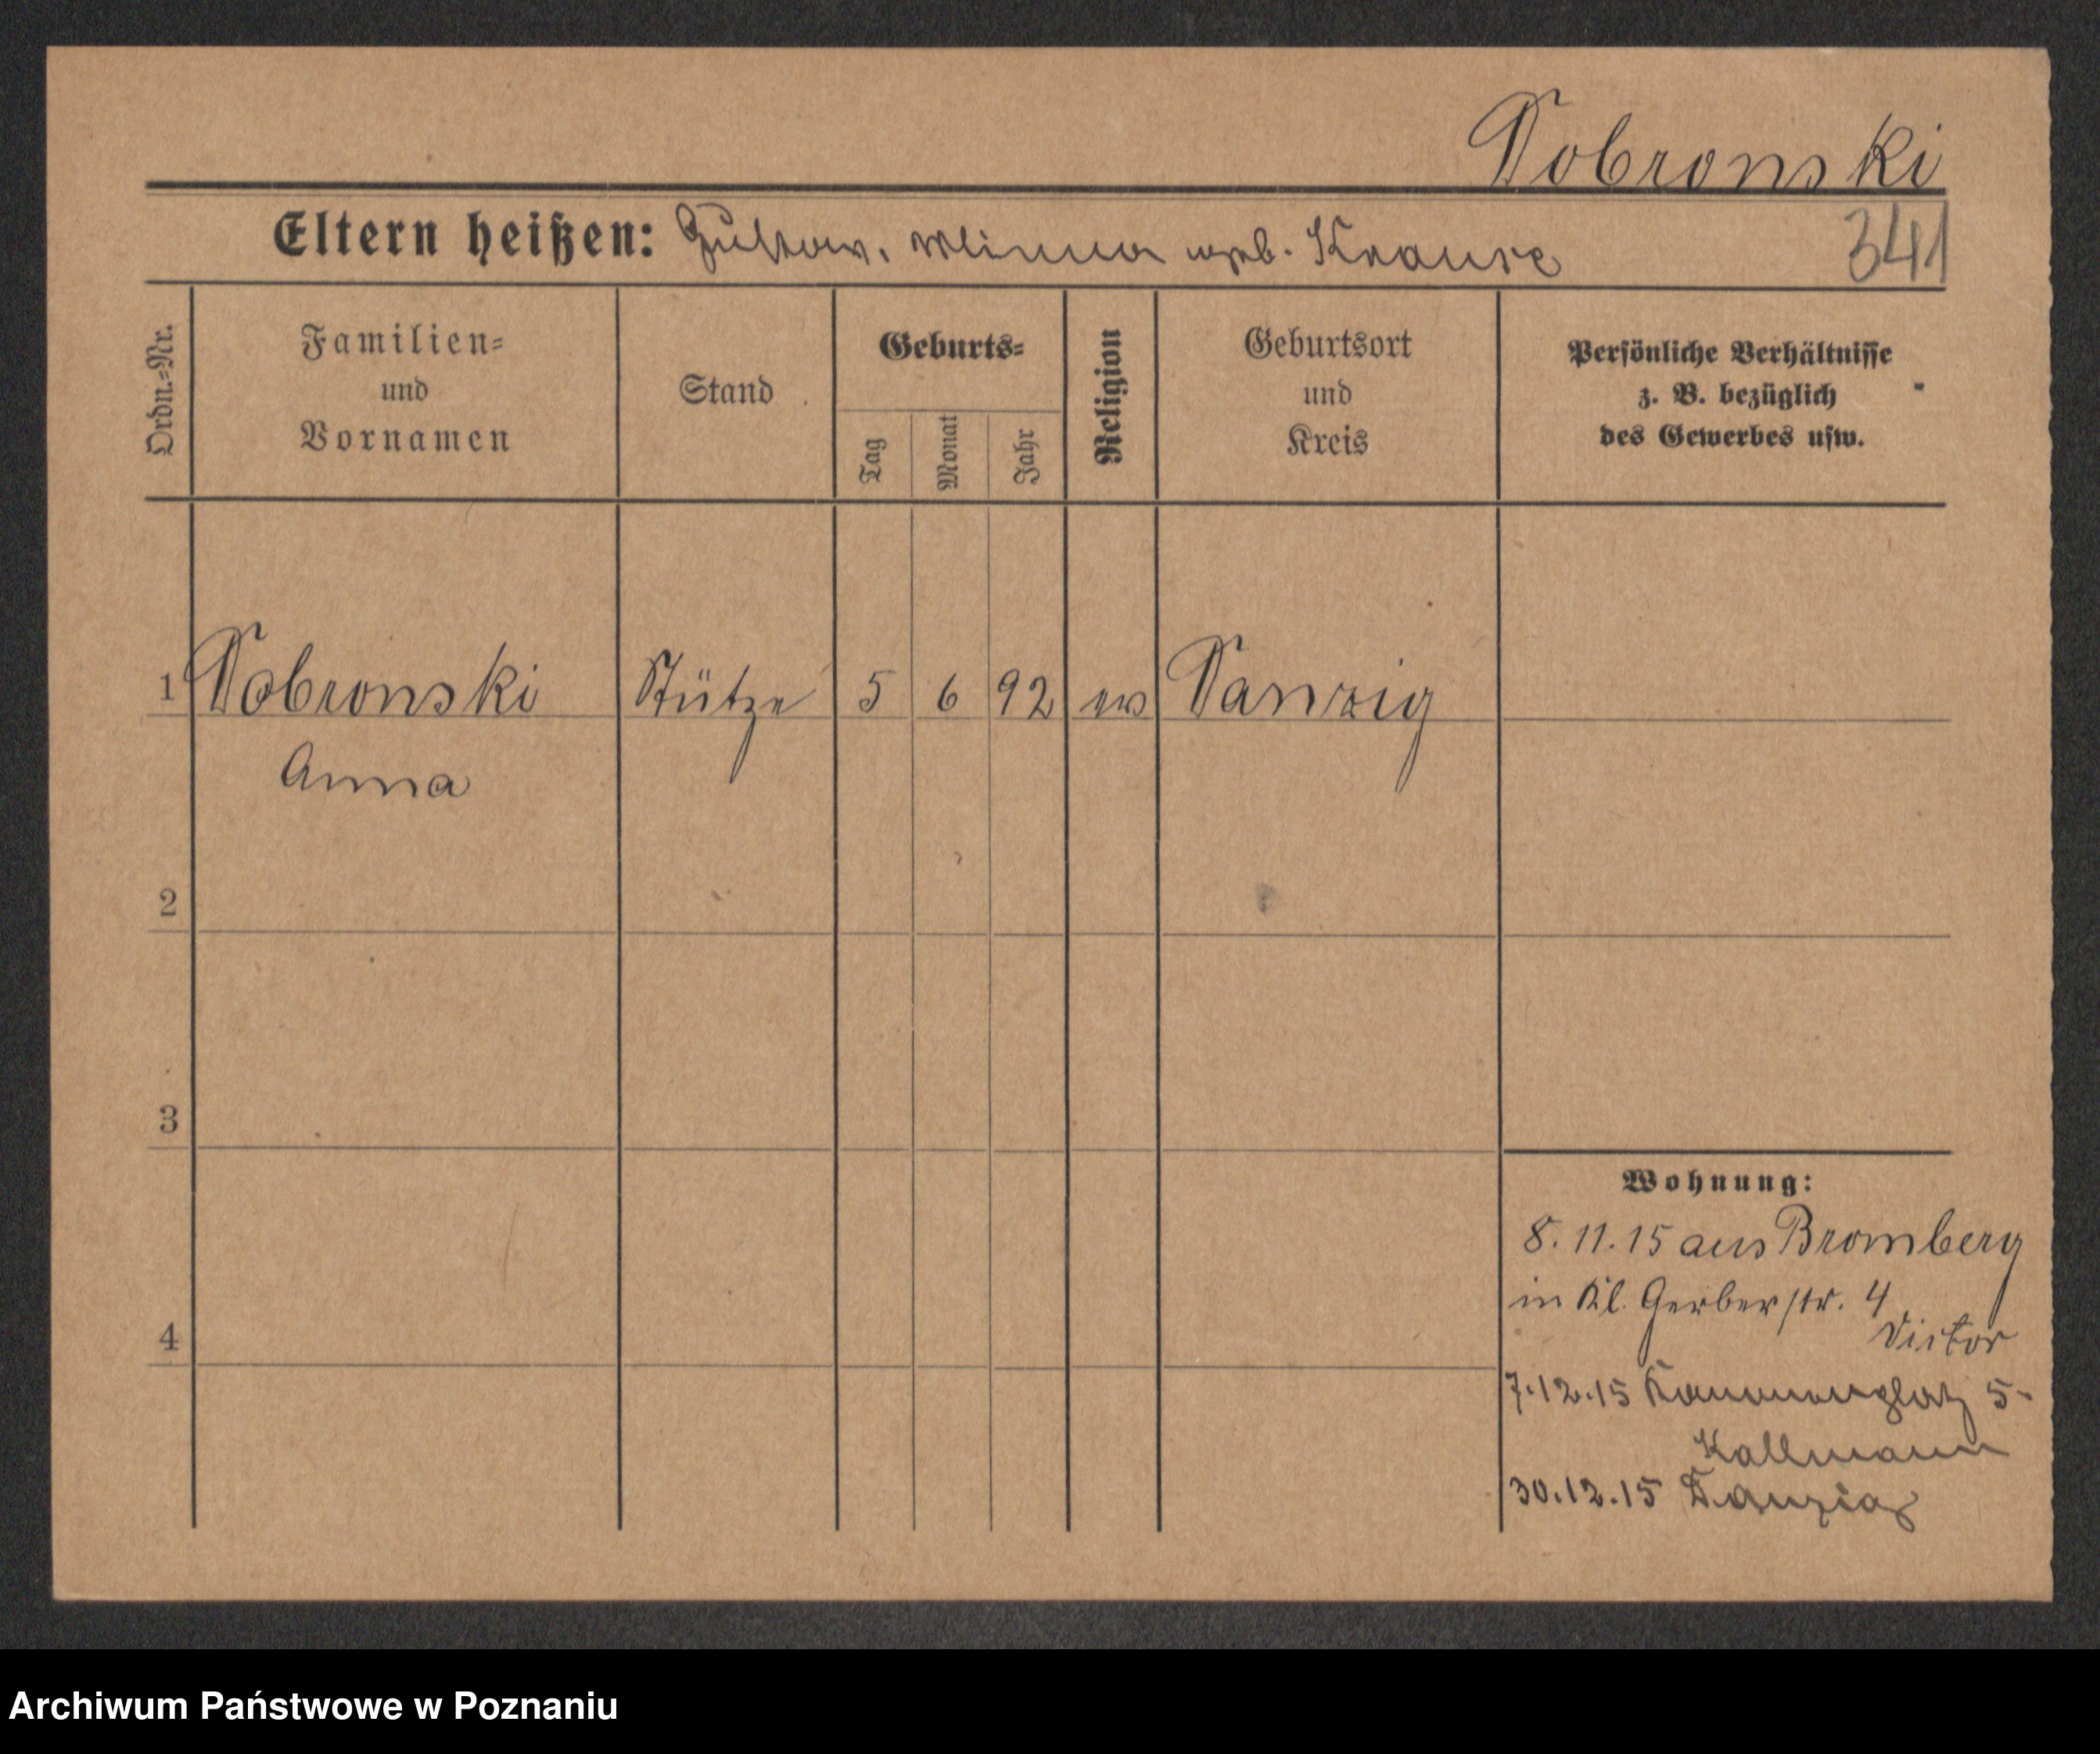 Dobronski
Eltern heißen: Gustav. Minna geb. Krause
341
Ordn.=Nr.
Familien=
und
Vornamen
Stand
Geburts=
Tag
Monat
Jahr
Religion
Geburtsort
und
Kreis
Persönliche Verhältnisse
z. B. bezüglich
des Gewerbes usw.
1 Dobronski Stütze 5 6 92 ev Danzig
Anna
2
3
4
Wohnung:
8. 11. 15 aus Bromberg
in Kl. Gerberstr. 4
Victor
7.12.15 Kanonenplatz 5
Kallmann
30.12.15 Danzig
Archiwum Państwowe w Poznaniu